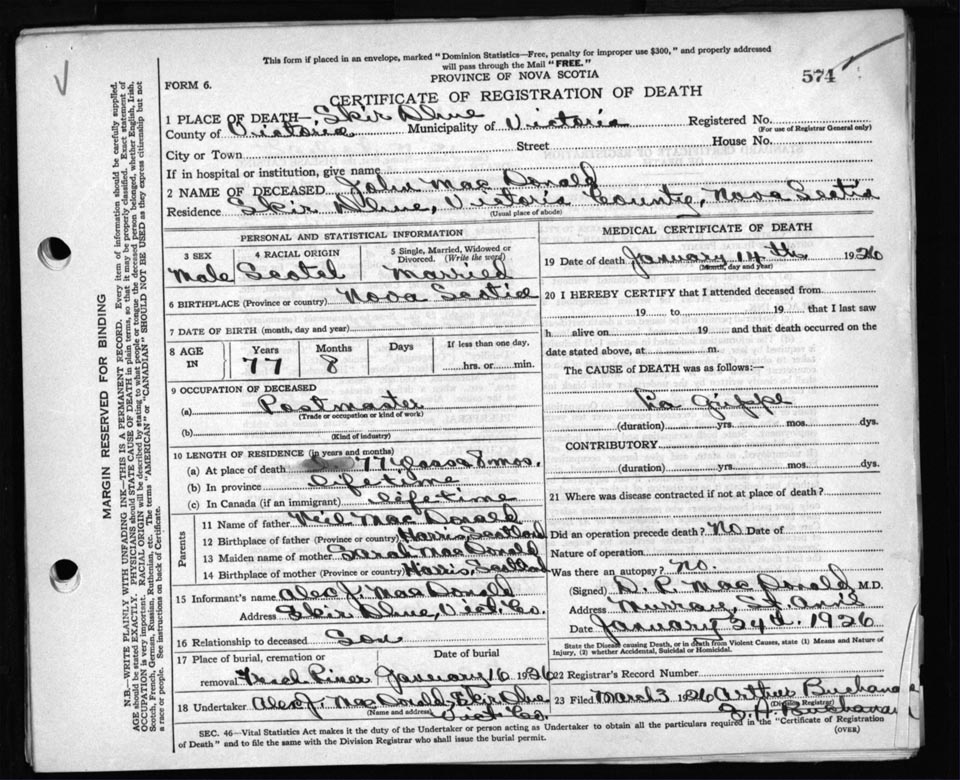 This form if placed in an envelope, marked "Dominion Statistics—Free, penalty for improper use $300," and properly addressed
will pass through the Mail "FREE."
PROVINCE OF NOVA SCOTIA
574
FORM 6.
CERTIFICATE OF REGISTRATION OF DEATH
1 PLACE OF DEATH— Skir Dhue
County of Victoria Municipality of Victoria Registered No.
(For use of Registrar General only)
City or Town Street House No.
If in hospital or institution, give name
2 NAME OF DECEASED John MacDonald
Residence Skir Dhue, Victoria County, Nova Scotia
(Usual place of abode)
PERSONAL AND STATISTICAL INFORMATION
3 SEX 4 RACIAL ORIGIN 5 Single, Married, Widowed or
Divorced. (Write the word)
Male Scotch Married
6 BIRTHPLACE (Province or country) Nova Scotia
7 DATE OF BIRTH (month, day and year)
8 AGE IN Years Months Days If less than one day,
77 8 hrs. or min.
9 OCCUPATION OF DECEASED
(a) Postmaster
(Trade or occupation or kind of work)
(b)
(Kind of industry)
10 LENGTH OF RESIDENCE (in years and months)
(a) At place of death 77 years 8 mos.
(b) In province Lifetime
(c) In Canada (if an immigrant) Lifetime
Parents
11 Name of father Neil MacDonald
12 Birthplace of father (Province or country) Harris, Scotland
13 Maiden name of mother Sarah MacDonald
14 Birthplace of mother (Province or country) Harris, Scotland
15 Informant's name Alex J. MacDonald
Address Skir Dhue, Vict. Co.
16 Relationship to deceased Son
17 Place of burial, cremation or Date of burial
removal River January 16 1926
18 Undertaker Alex J. MacDonald, Skir Dhue
(Name and address) Vict Co.
MEDICAL CERTIFICATE OF DEATH
19 Date of death January 14th 1926
(Month, day and year)
20 I HEREBY CERTIFY that I attended deceased from
19 to 19 that I last saw
h alive on 19 and that death occurred on the
date stated above, at m.
The CAUSE of DEATH was as follows:—
La Grippe
(duration) yrs. mos. dys.
CONTRIBUTORY
(duration) yrs. mos. dys.
21 Where was disease contracted if not at place of death?
Did an operation precede death? No Date of
Nature of operation
Was there an autopsy? No.
(Signed) D. P. MacDonald M.D.
Address Murray, St. Anns
Date January 24th. 1926
State the Disease causing Death, or in death from Violent Causes, state (1) Means and Nature of
Injury, (2) whether Accidental, Suicidal or Homicidal.
22 Registrar's Record Number
23 Filed March 3 1926 Arthur Buchanan
(Division Registrar)
Buchanan
SEC. 46—Vital Statistics Act makes it the duty of the Undertaker or person acting as Undertaker to obtain all the particulars required in the "Certificate of Registration
of Death" and to file the same with the Division Registrar who shall issue the burial permit.
(OVER)
MARGIN RESERVED FOR BINDING
N.B.—WRITE PLAINLY WITH UNFADING INK—THIS IS A PERMANENT RECORD. Every item of information should be carefully supplied.
AGE should be stated EXACTLY. PHYSICIANS should STATE CAUSE OF DEATH in plain terms, so that it may be properly classified. Exact statement of
OCCUPATION is very important. RACIAL ORIGIN will be described by stating to what people or tongue the deceased person belonged, whether English, Irish,
Scotch, French, German, Russian, Ruthenian, etc. The terms "AMERICAN" or "CANADIAN" SHOULD NOT BE USED as they express citizenship but not
a race or people. See instructions on back of Certificate.